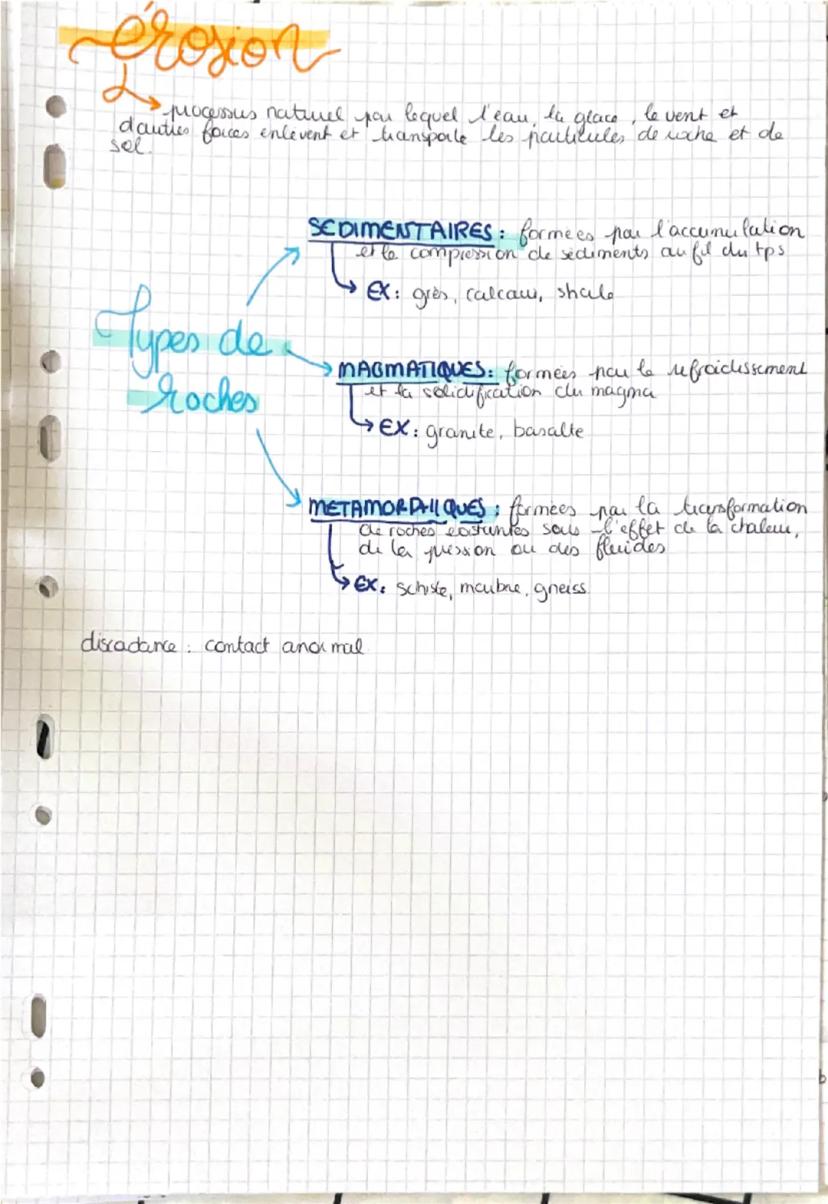 érosion
processus naturel par lequel l'eau, la glace, le vent et
d'autres forces enlèvent et transporte les particules de roche et de
sol.
SEDIMENTAIRES : formées par l'accumulation
et la compression de sédiments au fil du tps
EX : grès, calcaire, shale
Types de
roches
MAGMATIQUES : formées par le refroidissement
et la solidification du magma
EX : granite, basalte
METAMORPHIQUES : formées par la transformation
de roches existantes sous l'effet de la chaleur,
de la pression ou des fluides
EX : schiste, marbre, gneiss
discadance : contact anormal